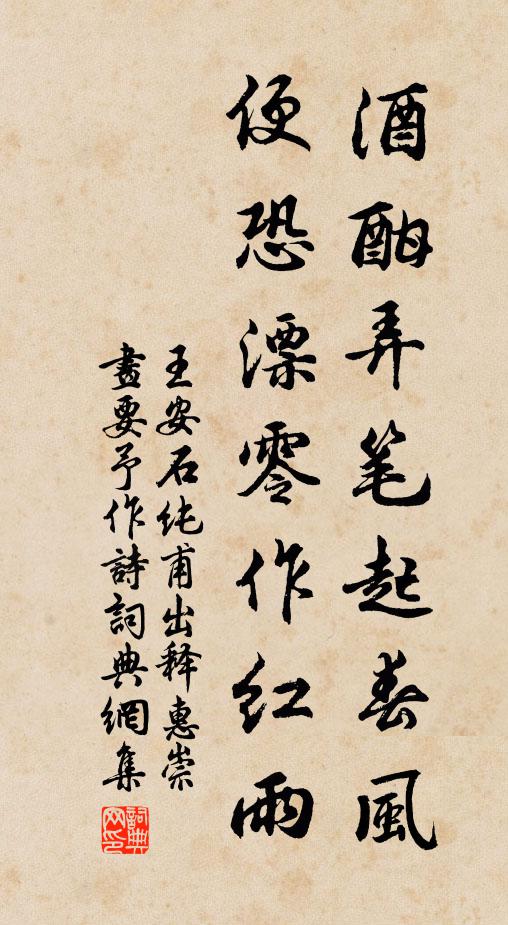 酒酣弄笔起春風
便恐漂零作紅雨
王安石纯甫出释惠崇
畫要予作詩詞典網集
詞典网印